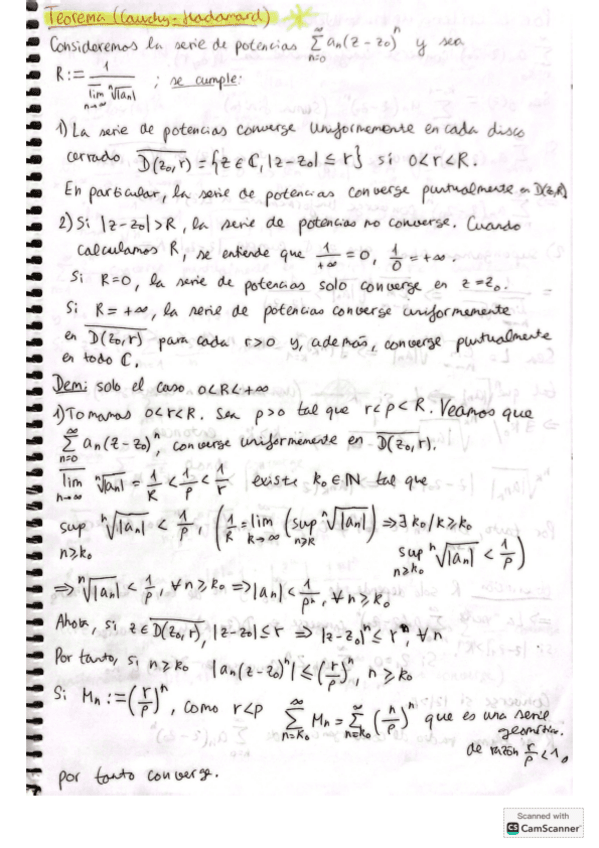 Teorema (Cauchy-Hadamard)
Consideremos la serie de potencias ∑_{n=0}^{∞} aₙ(z-z₀)ⁿ y sea
R := 1 / (lim̅_{n→∞} ⁿ√|aₙ|) ; se cumple:
1) La serie de potencias converge uniformemente en cada disco
cerrado D̅(z₀,r) = {z ∈ ℂ, |z-z₀| ≤ r} si 0<r<R.
En particular, la serie de potencias converge puntualmente en D(z₀,R)
2) Si |z-z₀|>R, la serie de potencias no converge. Cuando
calculamos R, se entiende que 1/+∞ = 0, 1/0 = +∞.
Si R=0, la serie de potencias solo converge en z=z₀.
Si R=+∞, la serie de potencias converge uniformemente
en D̅(z₀,r) para cada r>0 y, además, converge puntualmente
en todo ℂ.
Dem: solo el caso 0<R<+∞
1) Tomamos 0<r<R. Sea ρ>0 tal que r<ρ<R. Veamos que
∑_{n=0}^{∞} aₙ(z-z₀)ⁿ, converge uniformemente en D̅(z₀,r).
lim̅_{n→∞} ⁿ√|aₙ| = 1/R < 1/ρ < 1/r existe k₀ ∈ ℕ tal que
sup_{n≥k₀} ⁿ√|aₙ| < 1/ρ, (1/R = lim_{k→∞} (sup_{n≥k} ⁿ√|aₙ|) ⇒ ∃ k₀ / k≥k₀
sup_{n≥k₀} ⁿ√|aₙ| < 1/ρ)
⇒ ⁿ√|aₙ| < 1/ρ, ∀ n≥k₀ ⇒ |aₙ| < 1/ρⁿ, ∀ n≥k₀
Ahora, si z ∈ D̅(z₀,r), |z-z₀| ≤ r ⇒ |z-z₀|ⁿ ≤ rⁿ, ∀n
Por tanto, si n≥k₀ |aₙ(z-z₀)ⁿ| ≤ (r/ρ)ⁿ, n≥k₀
Si Mₙ := (r/ρ)ⁿ, como r<ρ ∑_{n=k₀}^{∞} Mₙ = ∑_{n=k₀}^{∞} (r/ρ)ⁿ que es una serie
geométrica
de razón r/ρ < 1,
por tanto converge.
Scanned with
CS CamScanner